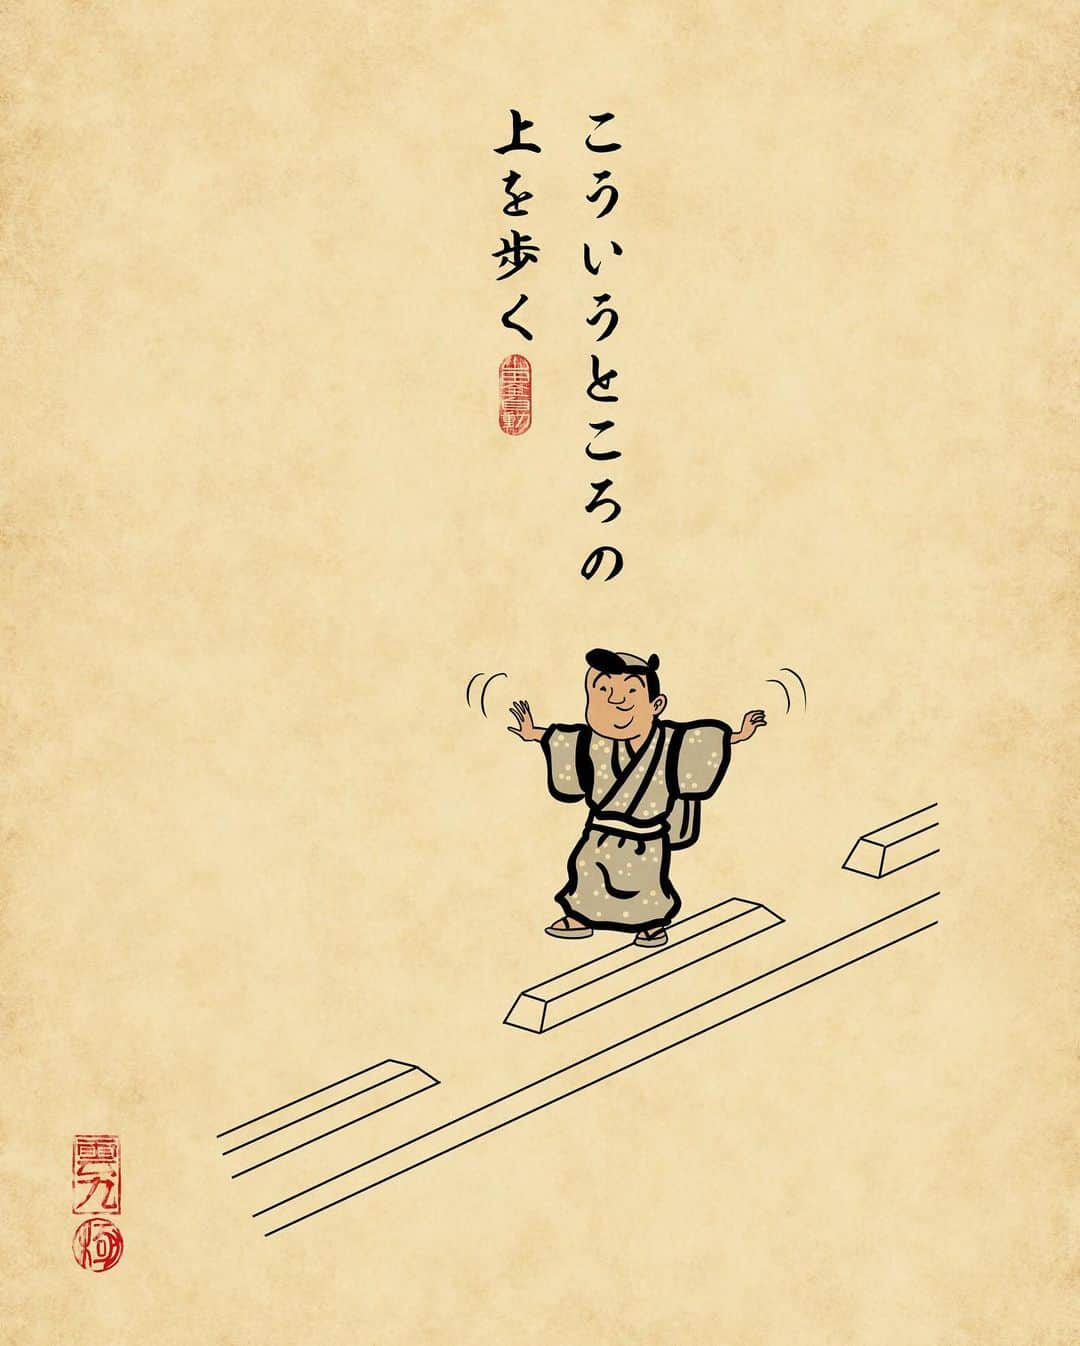 こういうところの
上を歩く
雲丸